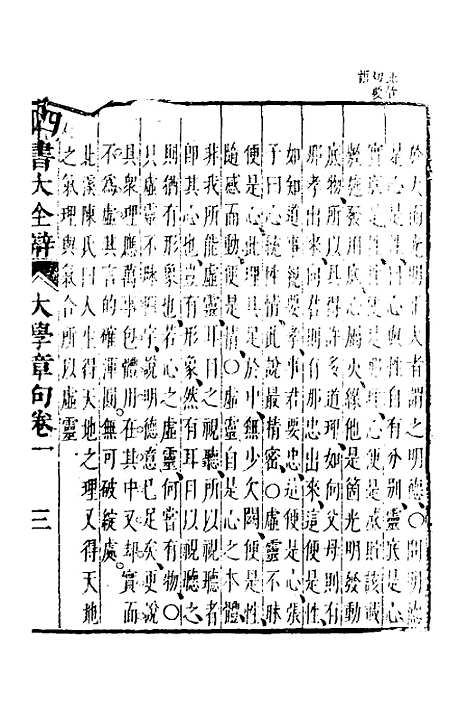 於天而光明正大者謂之明德○問明德
是心是性曰心與性自有分別靈底是心
實底是性性便是那理心便是盛貯該載
敷施發用底心屬火緣他是箇光明發動
底物所以具得許多道理如向父母則有
那孝出來向君則有那忠出來這便是性
如知道事親要孝事君要忠這便是心張
子曰心統性情此說最精密○虛靈不昧
便是心此理具足於中無少欠闕便是性
隨感而動便是情○虛靈自是心之本體
非我所能虛也耳目之視聽所以視聽者
即其心也豈有形象然有耳目以視聽之
則猶有形象也若心之虛靈何嘗有物○
只虛靈不昧四字說明德意已足矣更說
具眾理應萬事包體用在其中又却實而
不為虛其言的確渾圓無可破綻處
北溪陳氏曰人生得天地之理又得天地
之氣理與氣合所以虛靈
四書大全辯
大學章句卷一
三